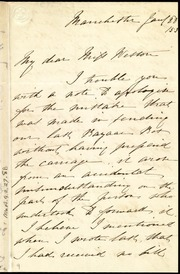 Manchester Jan
My dear Miss Weston
I trouble you
with a note to apologise
for the mistake that
was made in sending
our last Bazaar Box
without having prepaid
the carriage. it arose
from an accidental
misunderstanding on the
part of the person who
undertook to forward it.
I believe I mentioned
when I wrote last, that
I had received no bills